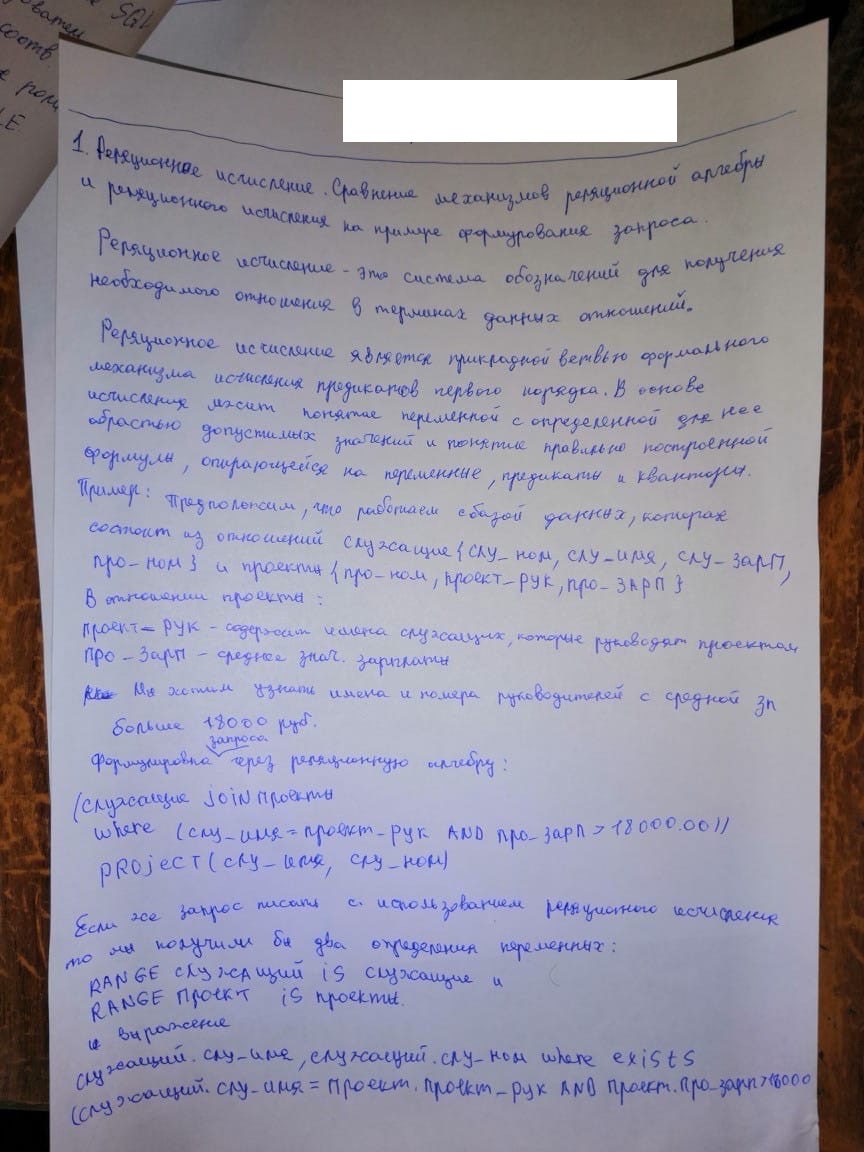 SQL
соотв.
1. Реляционное исчисление. Сравнение механизмов реляционной алгебры
и реляционного исчисления на примере формулирования запроса.
Реляционное исчисление - это система обозначений для получения
необходимого отношения в терминах данных отношений.
Реляционное исчисление является прикладной ветвью формального
механизма исчисления предикатов первого порядка. В основе
исчисления лежит понятие переменной с определенной для нее
областью допустимых значений и понятие правильно построенной
формулы, опирающейся на переменные, предикаты и кванторы.
Пример: Предположим, что работаем с базой данных, которая
состоит из отношений служащие {слу_ном, слу_имя, слу_зарп,
про_ном} и проекты {про_ном, проект_рук, про_зарп}
В отношении проекты:
проект_рук - содержит имена служащих, которые руководят проектом
про_зарп - среднее знач. зарплаты
Мы хотим узнать имена и номера руководителей с средной зп
больше 18000 руб.
запроса
Формулировка через реляционную алгебру:
(служащие join проекты
where (слу_имя = проект_рук AND про_зарп > 18000.00))
PROJECT (слу_имя, слу_ном)
Если же запрос писать с использованием реляционного исчисления
то мы получили бы два определения переменных:
RANGE служащий is служащие и
RANGE проект is проекты.
и выражение
служащий.слу_имя, служащий.слу_ном where exists
(служащий.слу_имя = проект.проект_рук AND проект.про_зарп > 18000